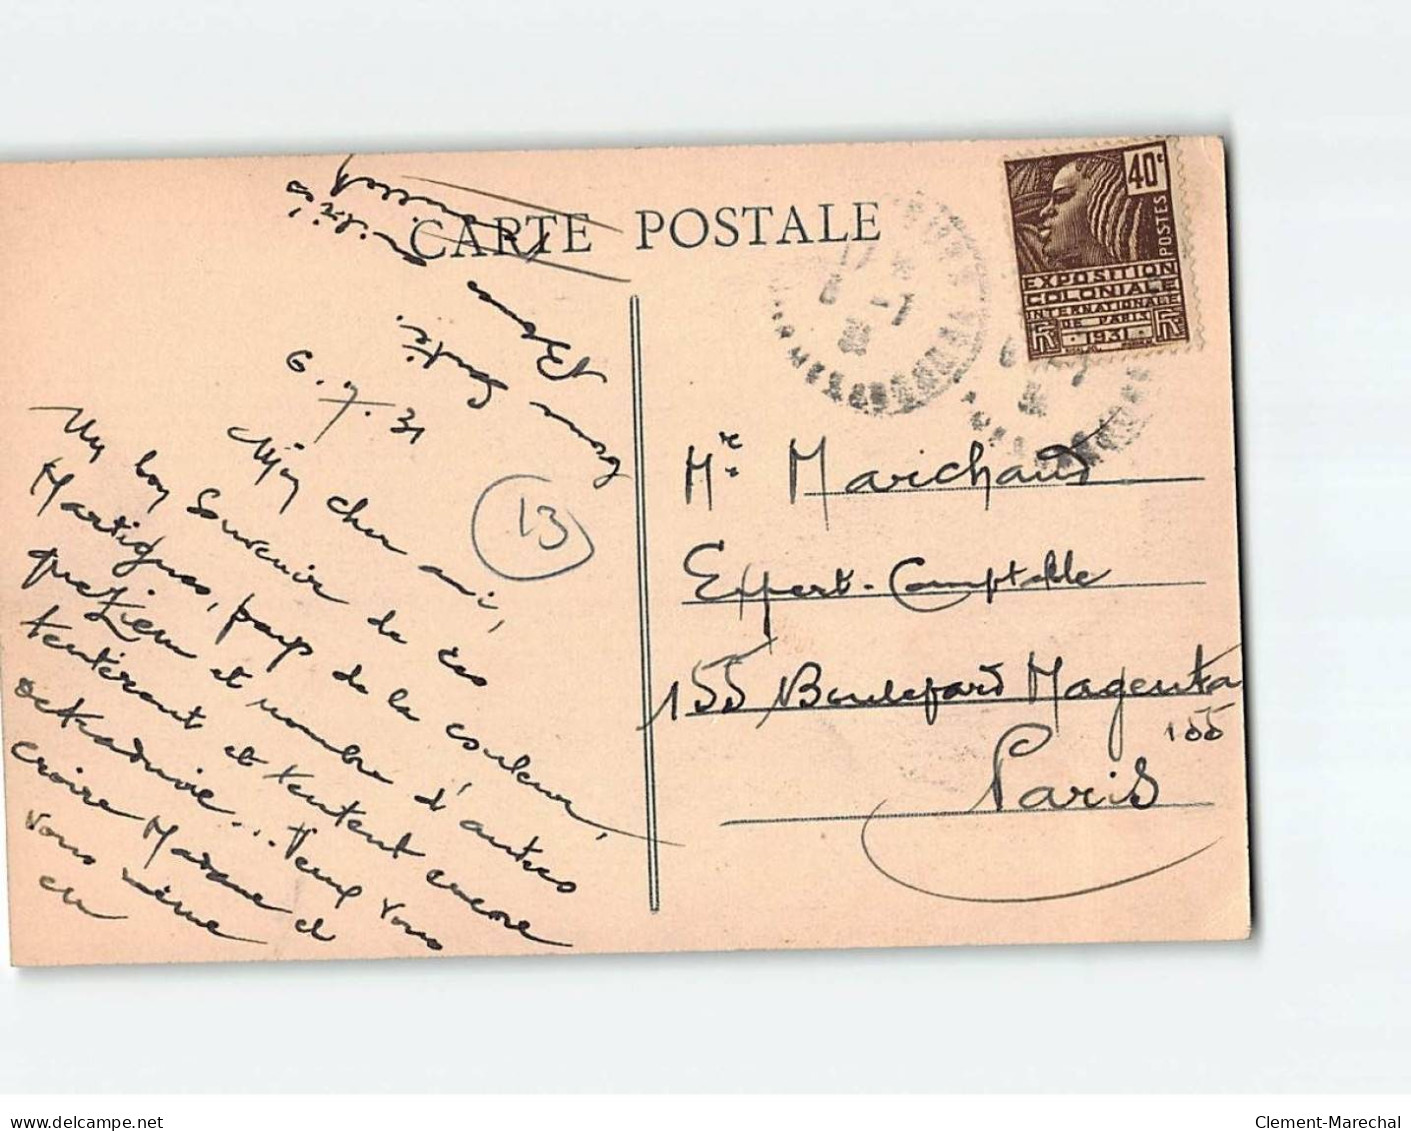 CARTE POSTALE
40c
POSTES
EXPOSITION
COLONIALE
INTERNATIONALE
DE PARIS
RF · 1931 · RF
6.7.31
Mon cher ami,
Un bon Souvenir de ces
Martigues, pays de la couleur,
que Ziem et nombre d'autres
tentèrent et tentent encore
de
croire Madame et
Vous même
en
bonne Santé.
13
Mr. Marchand
Expert-Comptable
155 Boulevard Magenta
155
Paris
www.delcampe.net
Clement-Marechal